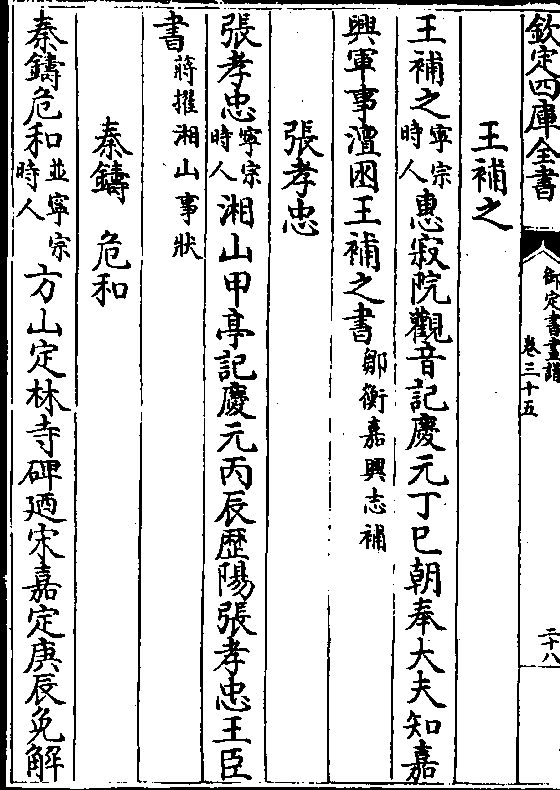 欽定四庫全書
御定書畫譜
卷三十五
二十八
王補之
王補之寧宗時人惠寂院觀音記慶元丁巳朝奉大夫知嘉
興軍事澶困王補之書鄒衡嘉興志補
張孝忠
張孝忠寧宗時人湘山甲亭記慶元丙辰歷陽張孝忠王臣
書蔣擢湘山事狀
秦鑄 危和
秦鑄危和並寧宗時人方山定林寺碑廼宋嘉定庚辰免解